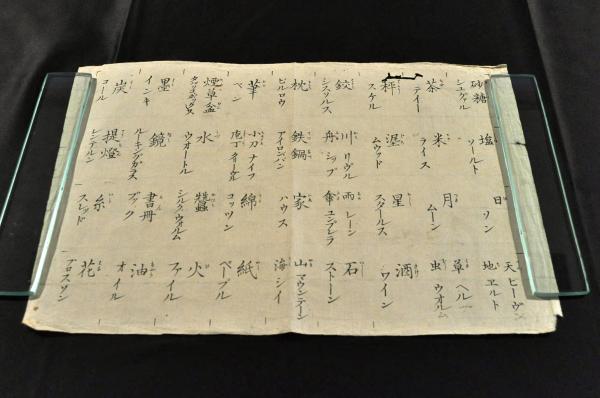 砂糖 塩 日 天 ヒーヴン
シユゲル ソールト ソン 地 エルト
茶 米 月 草 ヘルー
テイー ライス ムーン 虫 ウオルム
秤 泥 星 酒
スケル ムウッド スタールス ワイン
鋏 川 リヴル 雨 レーン 石
シスソルス 舟 シップ 傘 ユンブレラ ストーン
枕 鉄鍋 家 山 マウンテーン
ピルロウ アイロンパン ハウス 海 シイ
筆 小刀 ナイフ 綿 紙
ペン 庖丁 コッツン ペープル
煙草盆 水 蠶 火
ウオートル シルクウォルム ファイル
墨 鏡 書冊 油
インキ ルーキングガラス ブック オイル
炭 提燈 糸 花
コール レンテルン スレッド ブロスソン